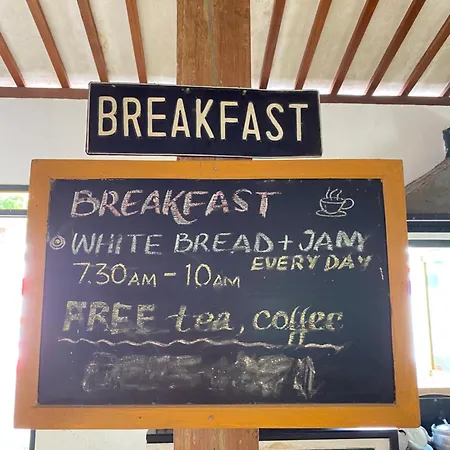 BREAKFAST
BREAKFAST
WHITE BREAD + JAM
EVERY DAY
7.30 AM - 10 AM
FREE tea, coffee